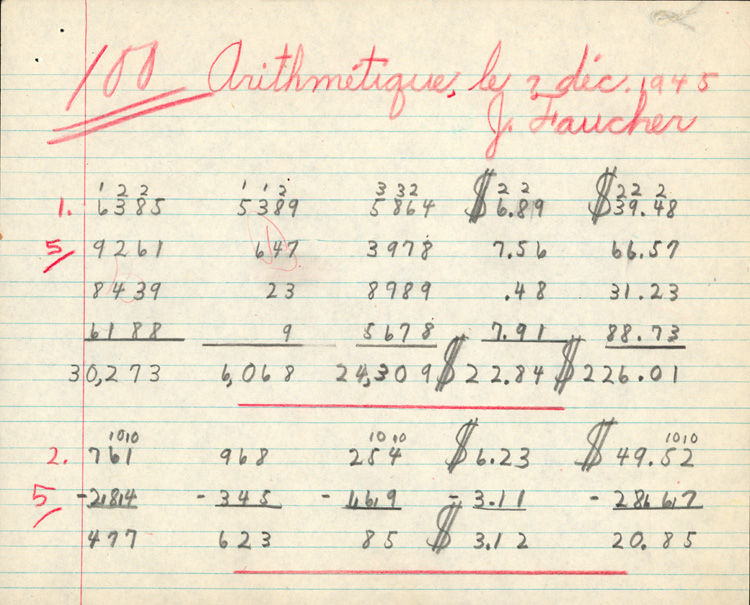 100 Arithmétique, le 3 déc. 1945
J. Faucher
1 2 2 1 1 2 3 3 2 2 2 2 2 2
1. 6385 5389 5864 $6.89 $39.48
5 9261 647 3978 7.56 66.57
8439 23 8989 .48 31.23
6188 9 5678 7.91 88.73
30,273 6,068 24,309 $22.84 $226.01
10 10 10 10 10 10
2. 761 968 254 $6.23 $49.52
5 -2 1 8 1 4 -345 -1 1 6 1 9 -3.11 -28. 1 6 1 7
477 623 85 $3.12 20.85